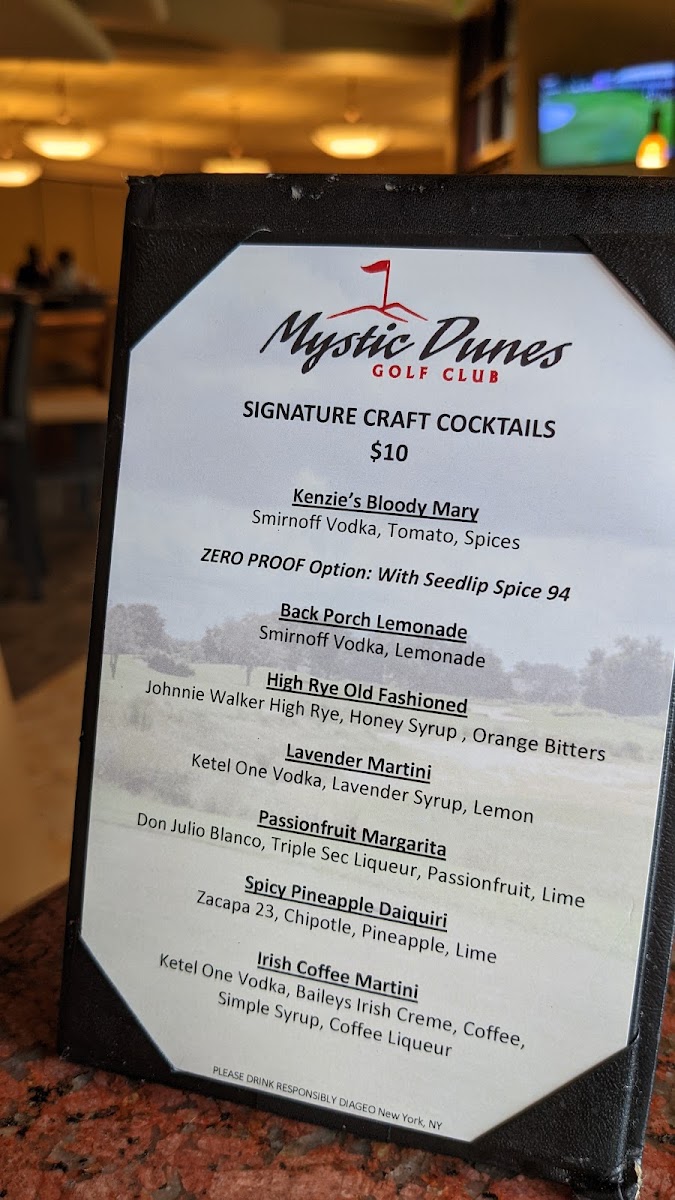 Mystic Dunes
GOLF CLUB
SIGNATURE CRAFT COCKTAILS
$10
Kenzie's Bloody Mary
Smirnoff Vodka, Tomato, Spices
ZERO PROOF Option: With Seedlip Spice 94
Back Porch Lemonade
Smirnoff Vodka, Lemonade
High Rye Old Fashioned
Johnnie Walker High Rye, Honey Syrup , Orange Bitters
Lavender Martini
Ketel One Vodka, Lavender Syrup, Lemon
Passionfruit Margarita
Don Julio Blanco, Triple Sec Liqueur, Passionfruit, Lime
Spicy Pineapple Daiquiri
Zacapa 23, Chipotle, Pineapple, Lime
Irish Coffee Martini
Ketel One Vodka, Baileys Irish Creme, Coffee,
Simple Syrup, Coffee Liqueur
PLEASE DRINK RESPONSIBLY DIAGEO New York, NY